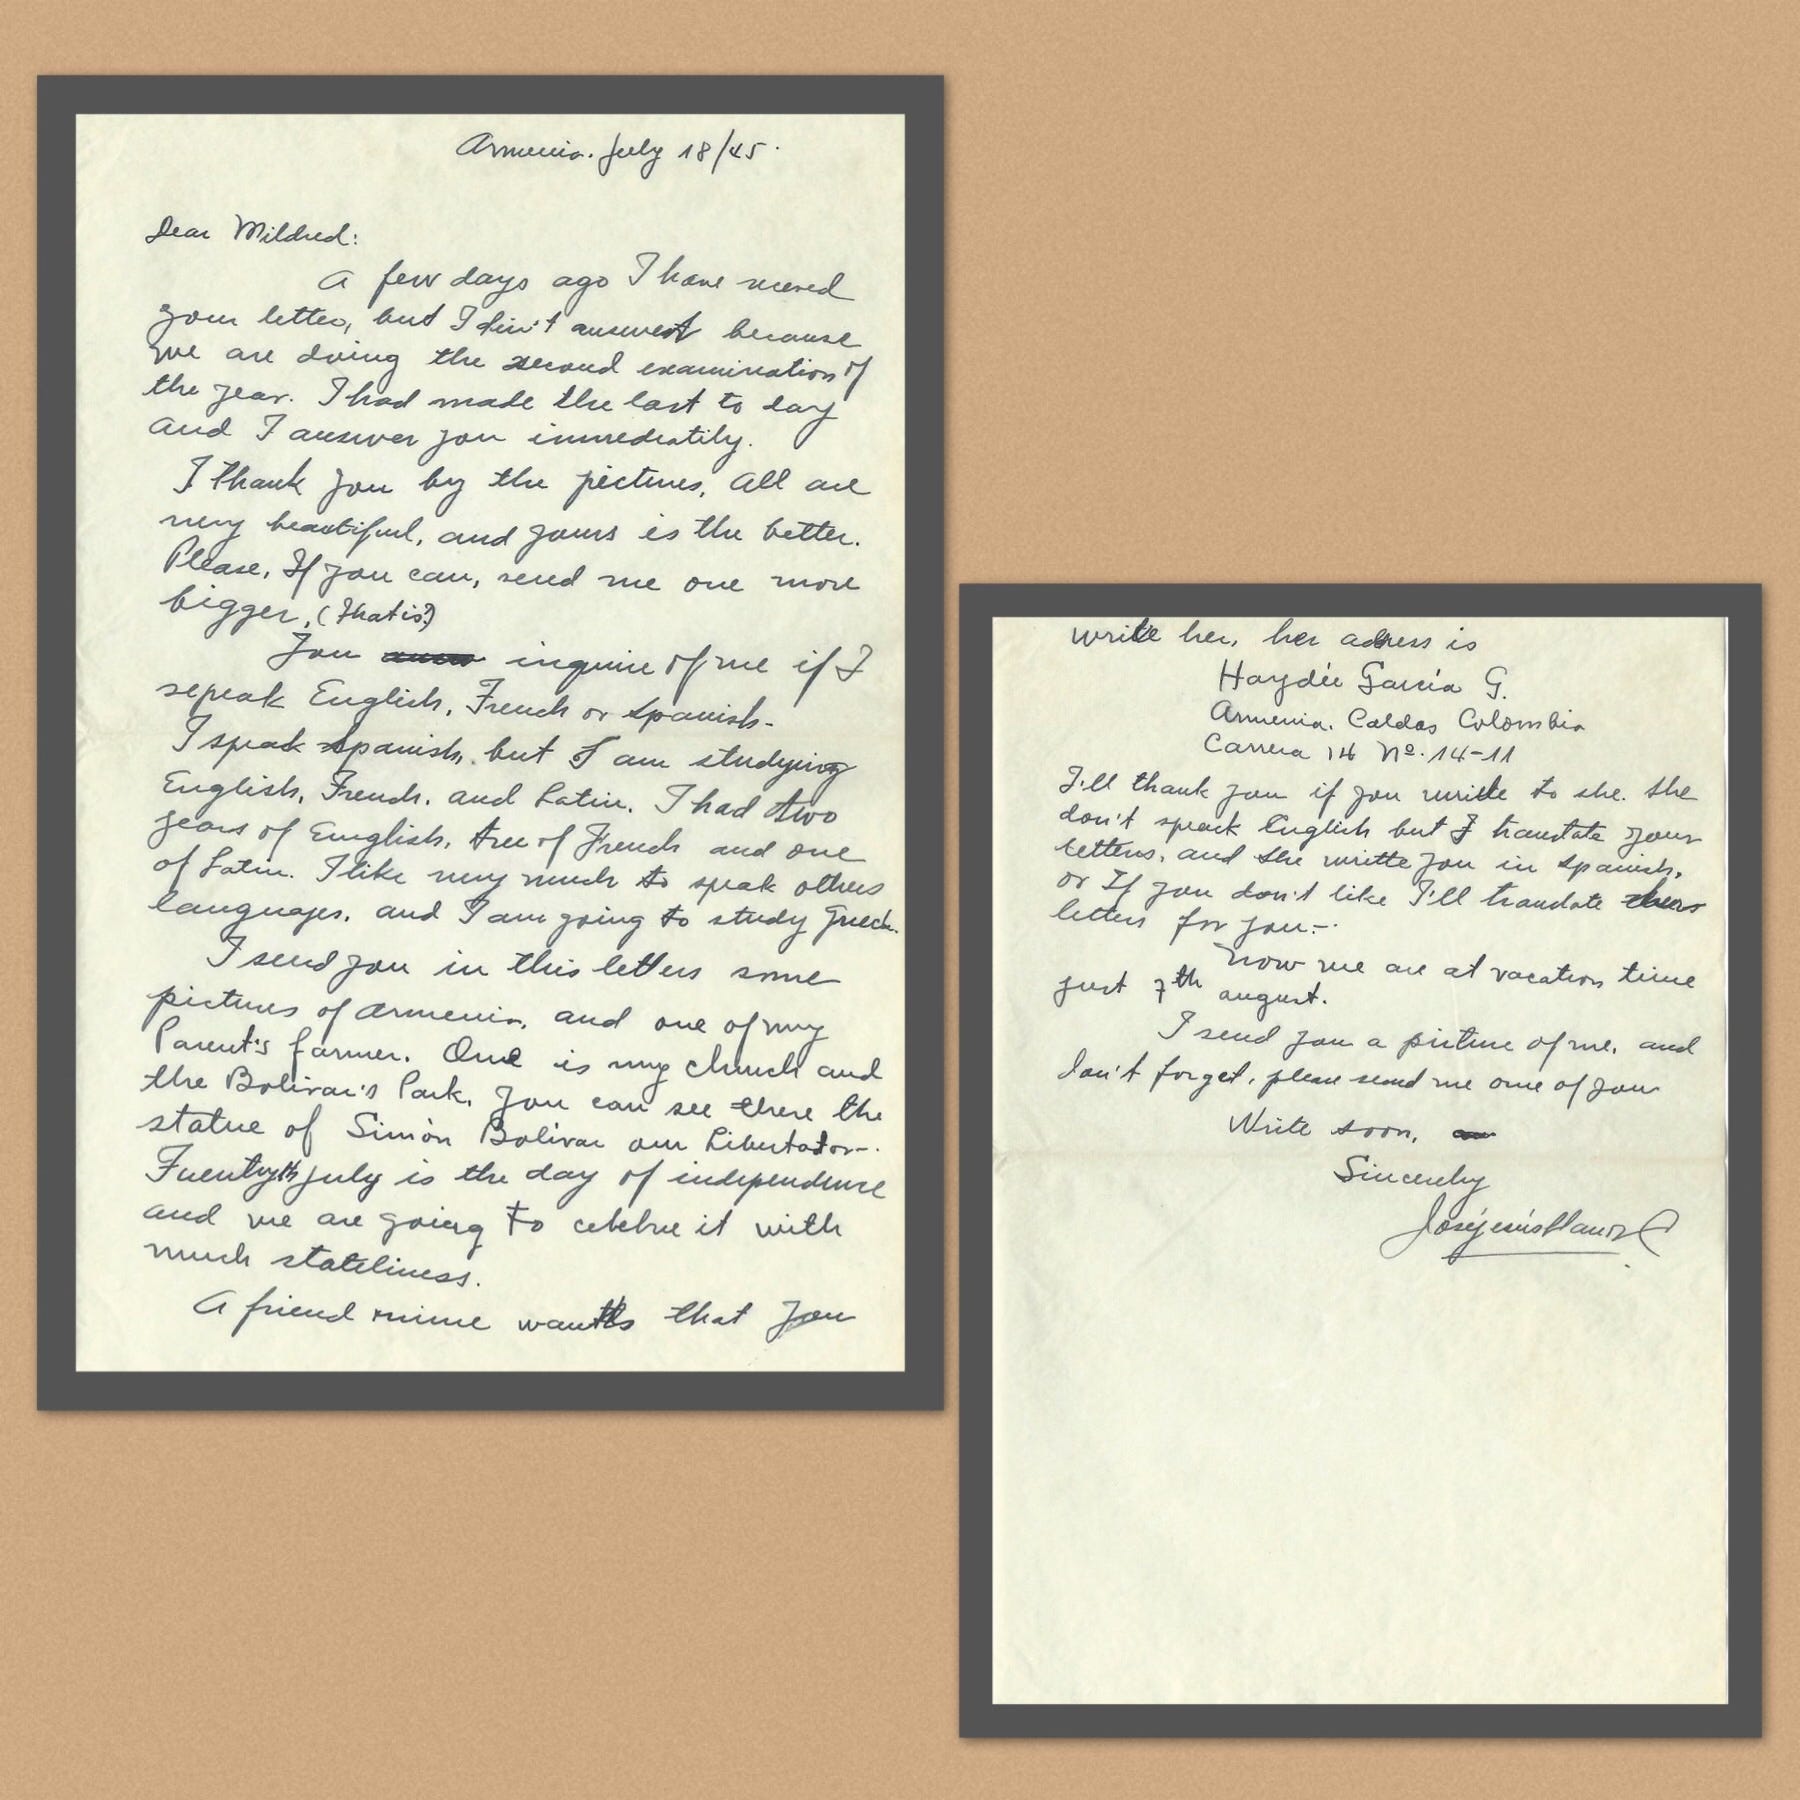 Armenia. July 18/45.
Dear Mildred:
A few days ago I have receved
your letter, but I din't answert because
we are doing the second examination of
the year. I had made the last to day
and I answer you immediatily.
I thank you by the pictures, all are
very beautiful, and yours is the better.
Please, If you can, send me one more
bigger, (That is?)
You inquire of me if I
sepeak English, French or Spanish-
I speak Spanish, but I am studying
English, French, and Latin. I had two
years of English, tree of French and one
of Latin. I like very much to speak others
languages, and I am going to study Greek.
I send you in this letters some
pictures of Armenia, and one of my
Parent's farmer. One is my church and
the Bolivar's Park. You can see there the
statue of Simón Bolívar our Libertador-.
Tuentyth July is the day of independence
and we are going to celebre it with
much stateliness.
A friend mine wants that you
write her, her adress is
Haydée García G.
Armenia. Caldas Colombia
Carrera 14 Nº. 14-11
I'll thank you if you write to she. She
don't speack English but I translate your
letters, and she writte you in Spanish,
or If you don't like I'll translate
letters for you.-.
Now we are at vacation time
just 7th august.
I send you a picture of me, and
don't forget, please send me one of you
Write soon,
Sincerely